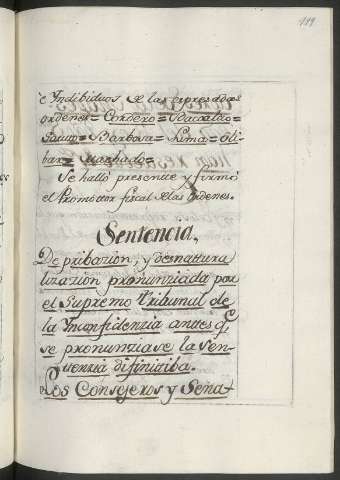 199
é Indibiduos de las expresadas
ordenes= Cordero= Pacheco=
Souto= Barbosa= Lima= Oli-
bar= Machado=
Se halló presente y firmó
el Promottor fiscal de las Ordenes.
Sentencia,
De pribazion, y desnattura
lizazion pronunziada por
el Supremo Tribunal de
la Ynconfidenzia antes q.e
se pronunziase la Sen-
ttenzia difinitiba.
Los Consejeros y Sena-